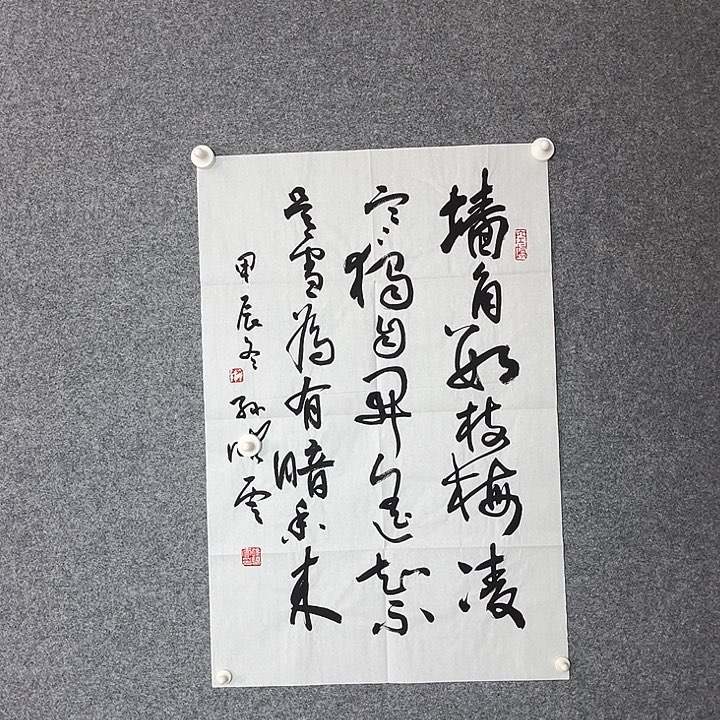 墙角数枝梅凌
寒獨自開遥知不
是雪為有暗香来
甲辰冬 孙 云